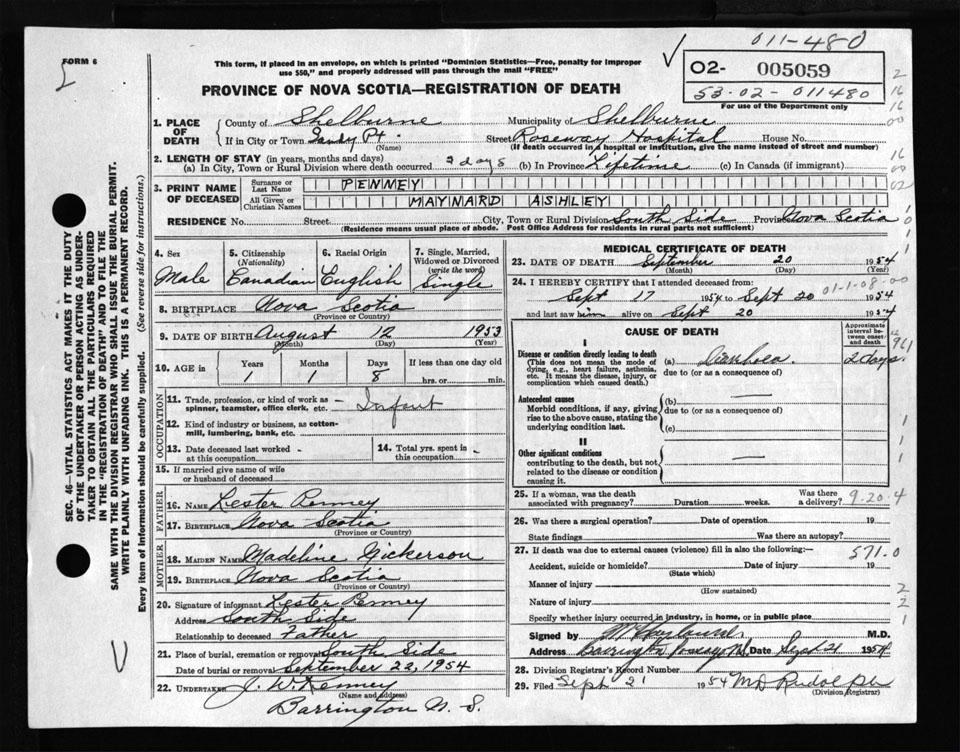 011-480
FORM 6
This form, if placed in an envelope, on which is printed "Dominion Statistics—Free, penalty for improper
use $50," and properly addressed will pass through the mail "FREE"
O2- 005059
53-02-011480
For use of the Department only
PROVINCE OF NOVA SCOTIA—REGISTRATION OF DEATH
1. PLACE OF DEATH
County of Shelburne Municipality of Shelburne
If in City or Town Sandy Pt. Street Roseway Hospital House No.
(Name) (If death occurred in a hospital or institution, give the name instead of street and number)
2. LENGTH OF STAY (in years, months and days)
(a) In City, Town or Rural Division where death occurred days (b) In Province Lifetime (c) In Canada (if immigrant)
3. PRINT NAME OF DECEASED
Surname or Last Name PENNEY
All Given or Christian Names MAYNARD ASHLEY
RESIDENCE No. Street City, Town or Rural Division South Side Province Nova Scotia
(Residence means usual place of abode. Post Office Address for residents in rural parts not sufficient)
4. Sex Male
5. Citizenship (Nationality) Canadian
6. Racial Origin English
7. Single, Married, Widowed or Divorced (write the word) Single
8. BIRTHPLACE Nova Scotia
(Province or Country)
9. DATE OF BIRTH August 12 1953
(Month) (Day) (Year)
10. AGE in Years 1 Months 1 Days 8 If less than one day old hrs. or min.
OCCUPATION
11. Trade, profession, or kind of work as— spinner, teamster, office clerk, etc. Infant
12. Kind of industry or business, as cotton-mill, lumbering, bank, etc.
13. Date deceased last worked at this occupation -
14. Total yrs. spent in this occupation -
15. If married give name of wife or husband of deceased
FATHER
16. NAME Lester Penney
17. BIRTHPLACE Nova Scotia
(Province or Country)
MOTHER
18. MAIDEN NAME Madeline Nickerson
19. BIRTHPLACE Nova Scotia
(Province or Country)
20. Signature of informant Lester Penney
Address South Side
Relationship to deceased Father
21. Place of burial, cremation or removal South Side
Date of burial or removal September 22, 1954
22. UNDERTAKER J. W. Kenney
(Name and address)
Barrington N. S.
MEDICAL CERTIFICATE OF DEATH
23. DATE OF DEATH September 20 1954
(Month) (Day) (Year)
24. I HEREBY CERTIFY that I attended deceased from:
01-1-08-00
Sept 17 1954 to Sept 20 1954
and last saw him alive on Sept 20 1954
CAUSE OF DEATH
Approximate interval between onset and death
I
Disease or condition directly leading to death (a) Diarrhoea 2 days.
(This does not mean the mode of dying, e.g., heart failure, asthenia, etc. It means the disease, injury, or complication which caused death.)
due to (or as a consequence of)
Antecedent causes (b) —
Morbid conditions, if any, giving rise to the above cause, stating the underlying condition last.
due to (or as a consequence of)
(c)
II
Other significant conditions —
contributing to the death, but not related to the disease or condition causing it.
25. If a woman, was the death associated with pregnancy? Duration weeks. Was there a delivery?
9.20.4
26. Was there a surgical operation? Date of operation 19
State findings Was there an autopsy?
27. If death was due to external causes (violence) fill in also the following:— 571.0
Accident, suicide or homicide? Date of injury 19
(State which)
Manner of injury
(How sustained)
Nature of injury
Specify whether injury occurred in industry, in home, or in public place
Signed by M.D.
Address Barrington Passage N.S. Date Sept 21 1954
28. Division Registrar's Record Number
29. Filed Sept 21 1954 MD Rudolph
(Division Registrar)
SEC. 46—VITAL STATISTICS ACT MAKES IT THE DUTY
OF THE UNDERTAKER OR PERSON ACTING AS UNDER-
TAKER TO OBTAIN ALL THE PARTICULARS REQUIRED
IN THE "REGISTRATION OF DEATH" AND FILE THE
SAME WITH THE DIVISION REGISTRAR WHO SHALL ISSUE THE BURIAL PERMIT.
WRITE PLAINLY WITH UNFADING INK. THIS IS A PERMANENT RECORD.
Every item of information should be carefully supplied. (See reverse side for instructions.)